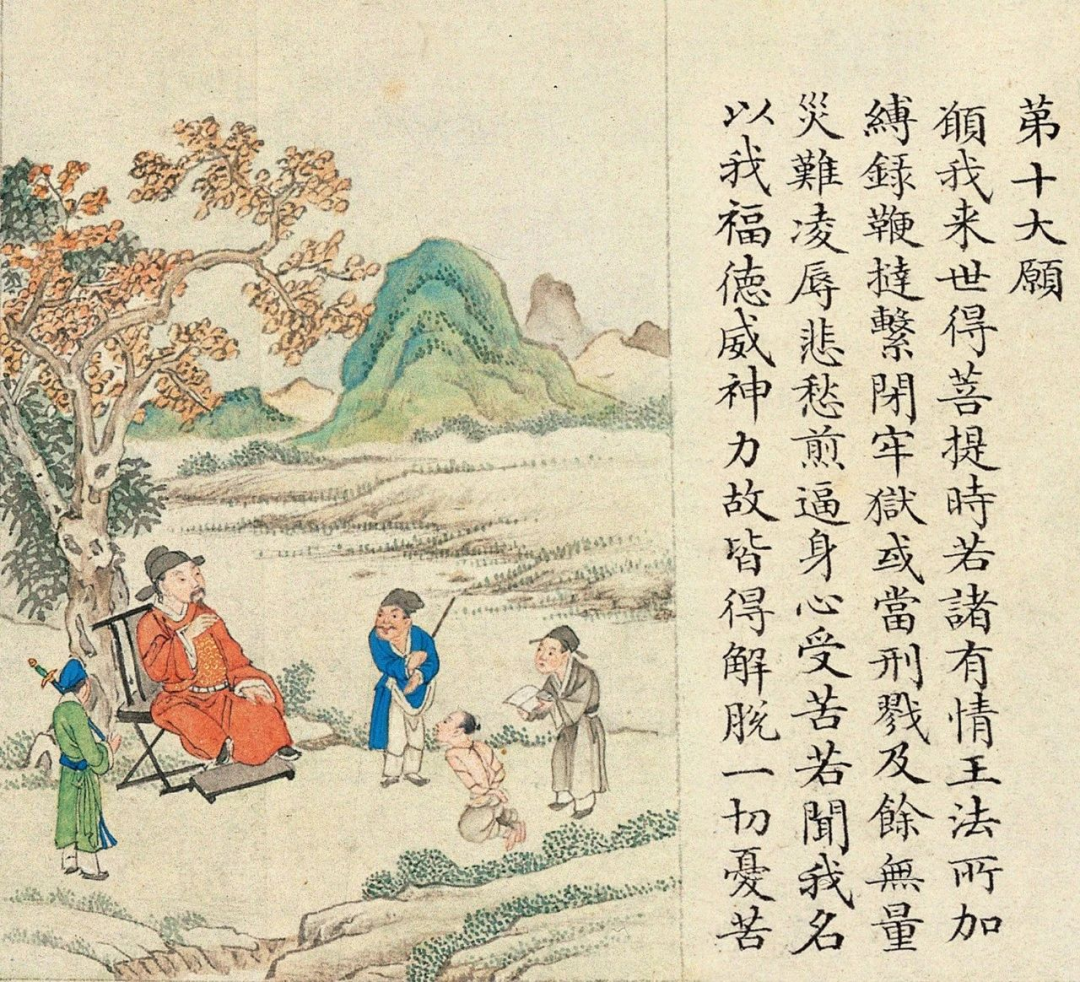 苐十大願
願我来世得菩提時若諸有情王法所加
縛錄鞭撻繫閉牢獄或當刑戮及餘無量
災難凌辱悲愁煎逼身心受苦若聞我名
以我福德威神力故皆得解脫一切憂苦